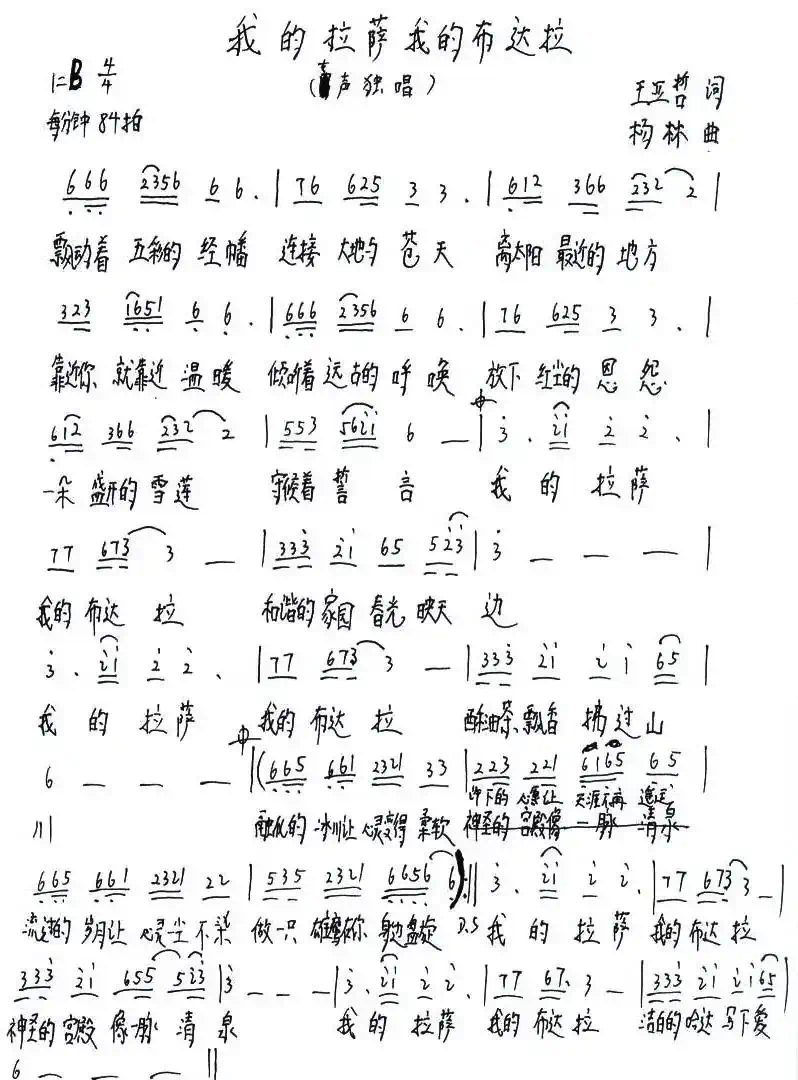 我的拉萨我的布达拉
1=B 4/4 (声独唱) 王亚哲 词
每分钟84拍 杨林 曲
666 2356 6 6. | 76 625 3 3. | 612 366 232 2 |
飘动着 五彩的 经幡 连接 大地与 苍天 离太阳 最近的 地方
323 1651 6 6. | 666 2356 6 6. | 76 625 3 3. |
靠近你 就靠近 温暖 倾听着 远古的 呼唤 放下 红尘的 恩怨
612 366 232 2 | 553 5621 6 — | 3. 21 2 2. |
一朵 盛开的 雪莲 守候着 誓言 我的拉萨
77 673 3 — | 333 21 65 523 | 3 — — — |
我的 布达拉 和谐的 家园 春光 映天边
3. 21 2 2. | 77 673 3 — | 333 21 2 1 65 |
我的拉萨 我的 布达拉 酥油茶 飘香 拂过山
6 — — — | (665 661 2321 33 | 223 221 6165 65
许下的 心愿让 天涯不再 遥远
川 融化的 冰川让 心灵变得 柔软 神圣的 宫殿像 一脉 清泉
665 661 2321 22 | 535 2321 6656 6) :‖ 3. 21 2 2. | 77 673 3 — |
流逝的 岁月让 心灵一尘 不染 做一只 雄鹰在你 身边盘旋 D.S 我的拉萨 我的 布达拉
333 21 655 523 | 3 — — — | 3. 21 2 2. | 77 67. 3 — | 333 21 2165 |
神圣的 宫殿 像一脉 清泉 我的拉萨 我的 布达拉 洁白的 哈达 写下爱
6 — — — ‖